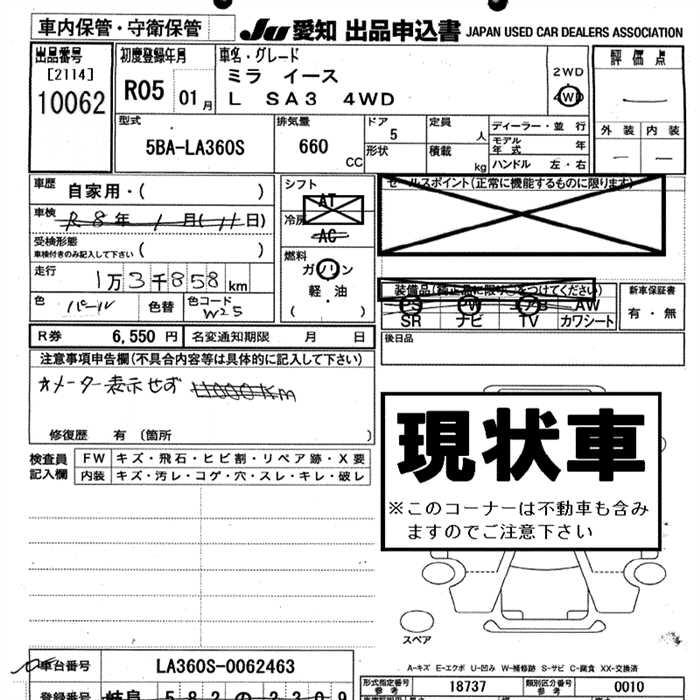 車内保管・守衛保管 JU 愛知 出品申込書 JAPAN USED CAR DEALERS ASSOCIATION
出品番号 初度登録年月 車名・グレード 評価点
[2114] ミラ イース 2WD
10062 R05 01月 L SA3 4WD 4WD
外装 内装
型式 排気量 ドア 定員 ディーラー・並行
5BA-LA360S 660 CC 5 人 モデル年式 年
形状 積載 kg ハンドル 左・右
車歴 自家用・( ) シフト セールスポイント(正常に機能するものに限ります)
AT
車検 R8年1月(11日) 冷房 AC
受検形態
車検付きのみ記入して下さい ( ) 燃料
走行 1万3千858km ガソリン 装備品(純正品に限り○をつけてください) 新車保証書
軽・油 PS PW AB AW 有・無
色 パール 色替 色コード W25 ( ) SR ナビ TV カワシート
R券 6,550円 名変通知期限 月 日 後日品
注意事項申告欄(不具合内容等は具体的に記入して下さい)
オメーター表示せず 11000Km
修復歴 有 〔箇所 〕
検査員記入欄 FW キズ・飛石・ヒビ割・リペア跡・X要
内装 キズ・汚レ・コゲ・穴・スレ・キレ・破レ
現状車
※このコーナーは不動車も含み
ますのでご注意下さい
スペア
A-キズ E-エクボ U-凹み W-補修跡 S-サビ C-腐食 XX-交換済
車台番号 LA360S-0062463
型式指定番号 参考 18737 類別区分番号 参考 0010
登録番号 岐阜 582 の 2309